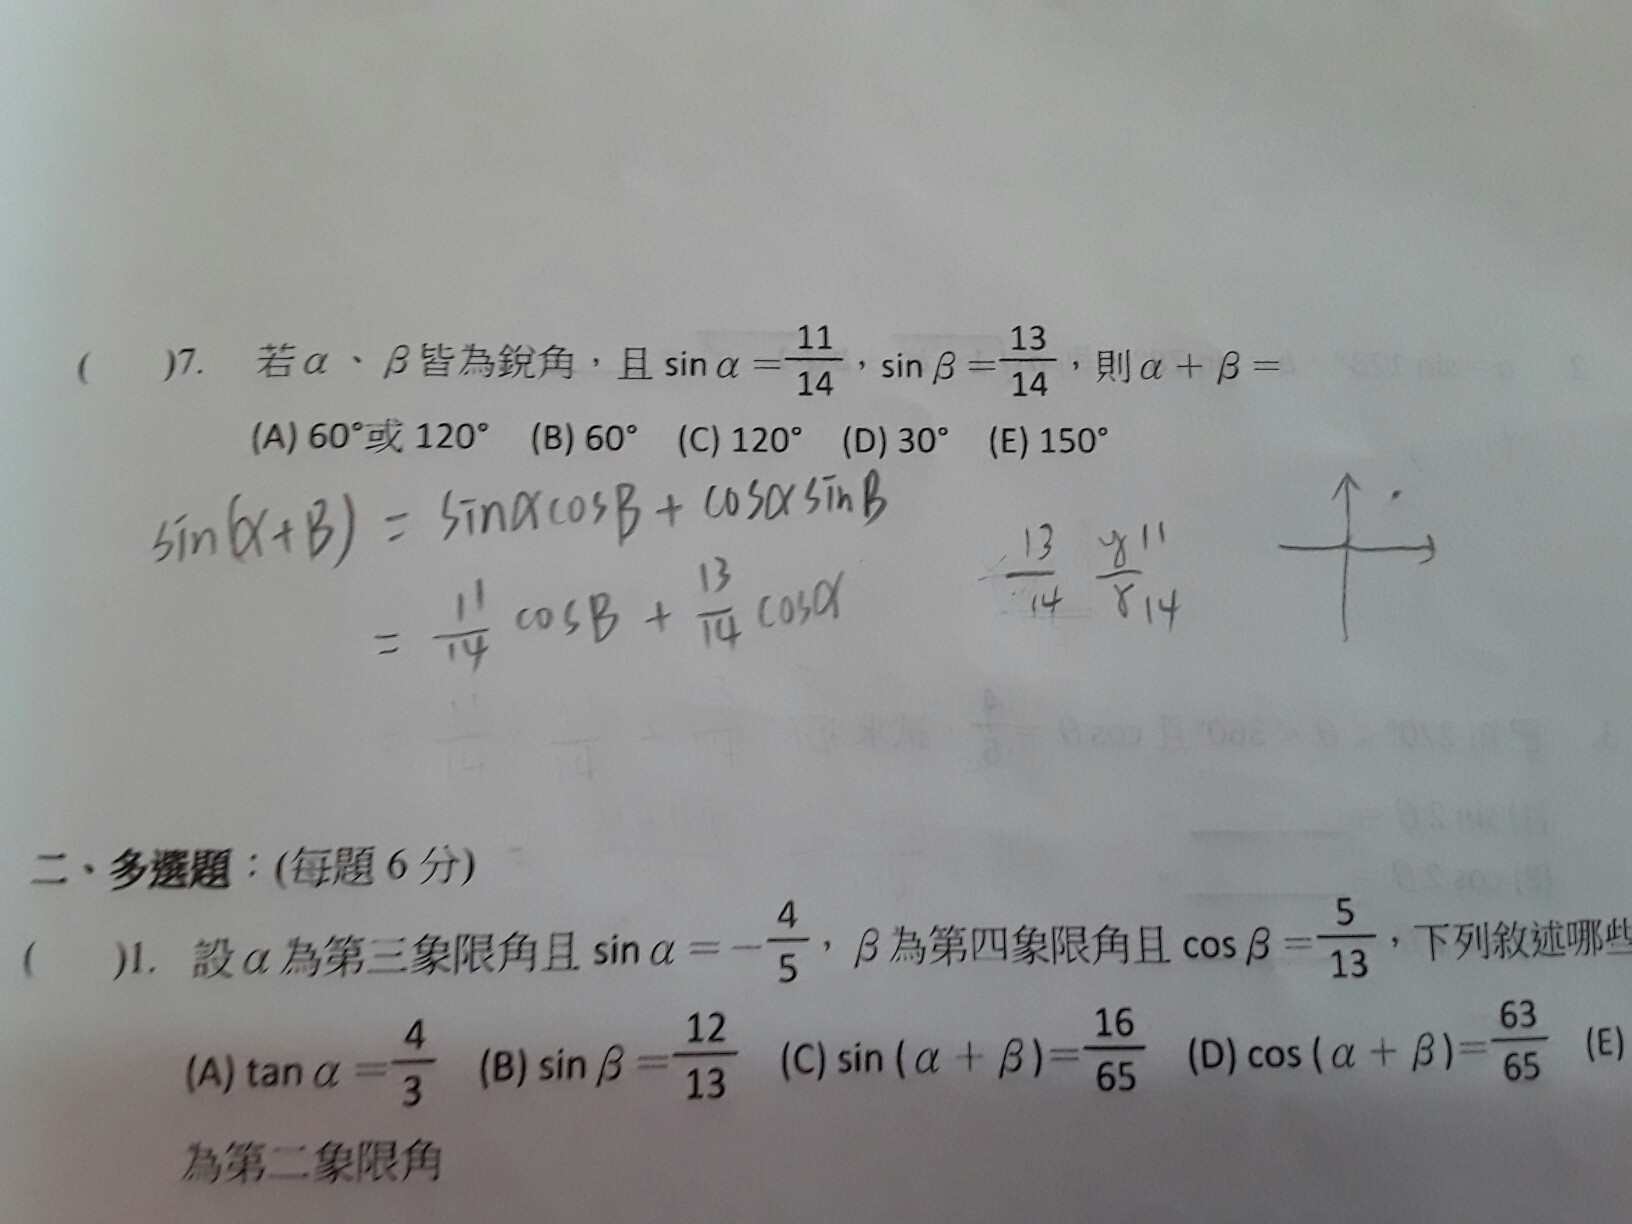 ( )7. 若α、β皆為銳角，且 sin α = 11/14，sin β = 13/14，則 α + β =
(A) 60°或 120° (B) 60° (C) 120° (D) 30° (E) 150°
sin(α+B) = sinαcosB + cosαsinB
= 11/14 cosB + 13/14 cosα
13/14 y/r 11/14
二、多選題：(每題 6 分)
( )1. 設α為第三象限角且 sin α = −4/5，β為第四象限角且 cos β = 5/13，下列敘述哪些
(A) tan α = 4/3 (B) sin β = 12/13 (C) sin ( α + β )= 16/65 (D) cos ( α + β )= 63/65 (E)
為第二象限角